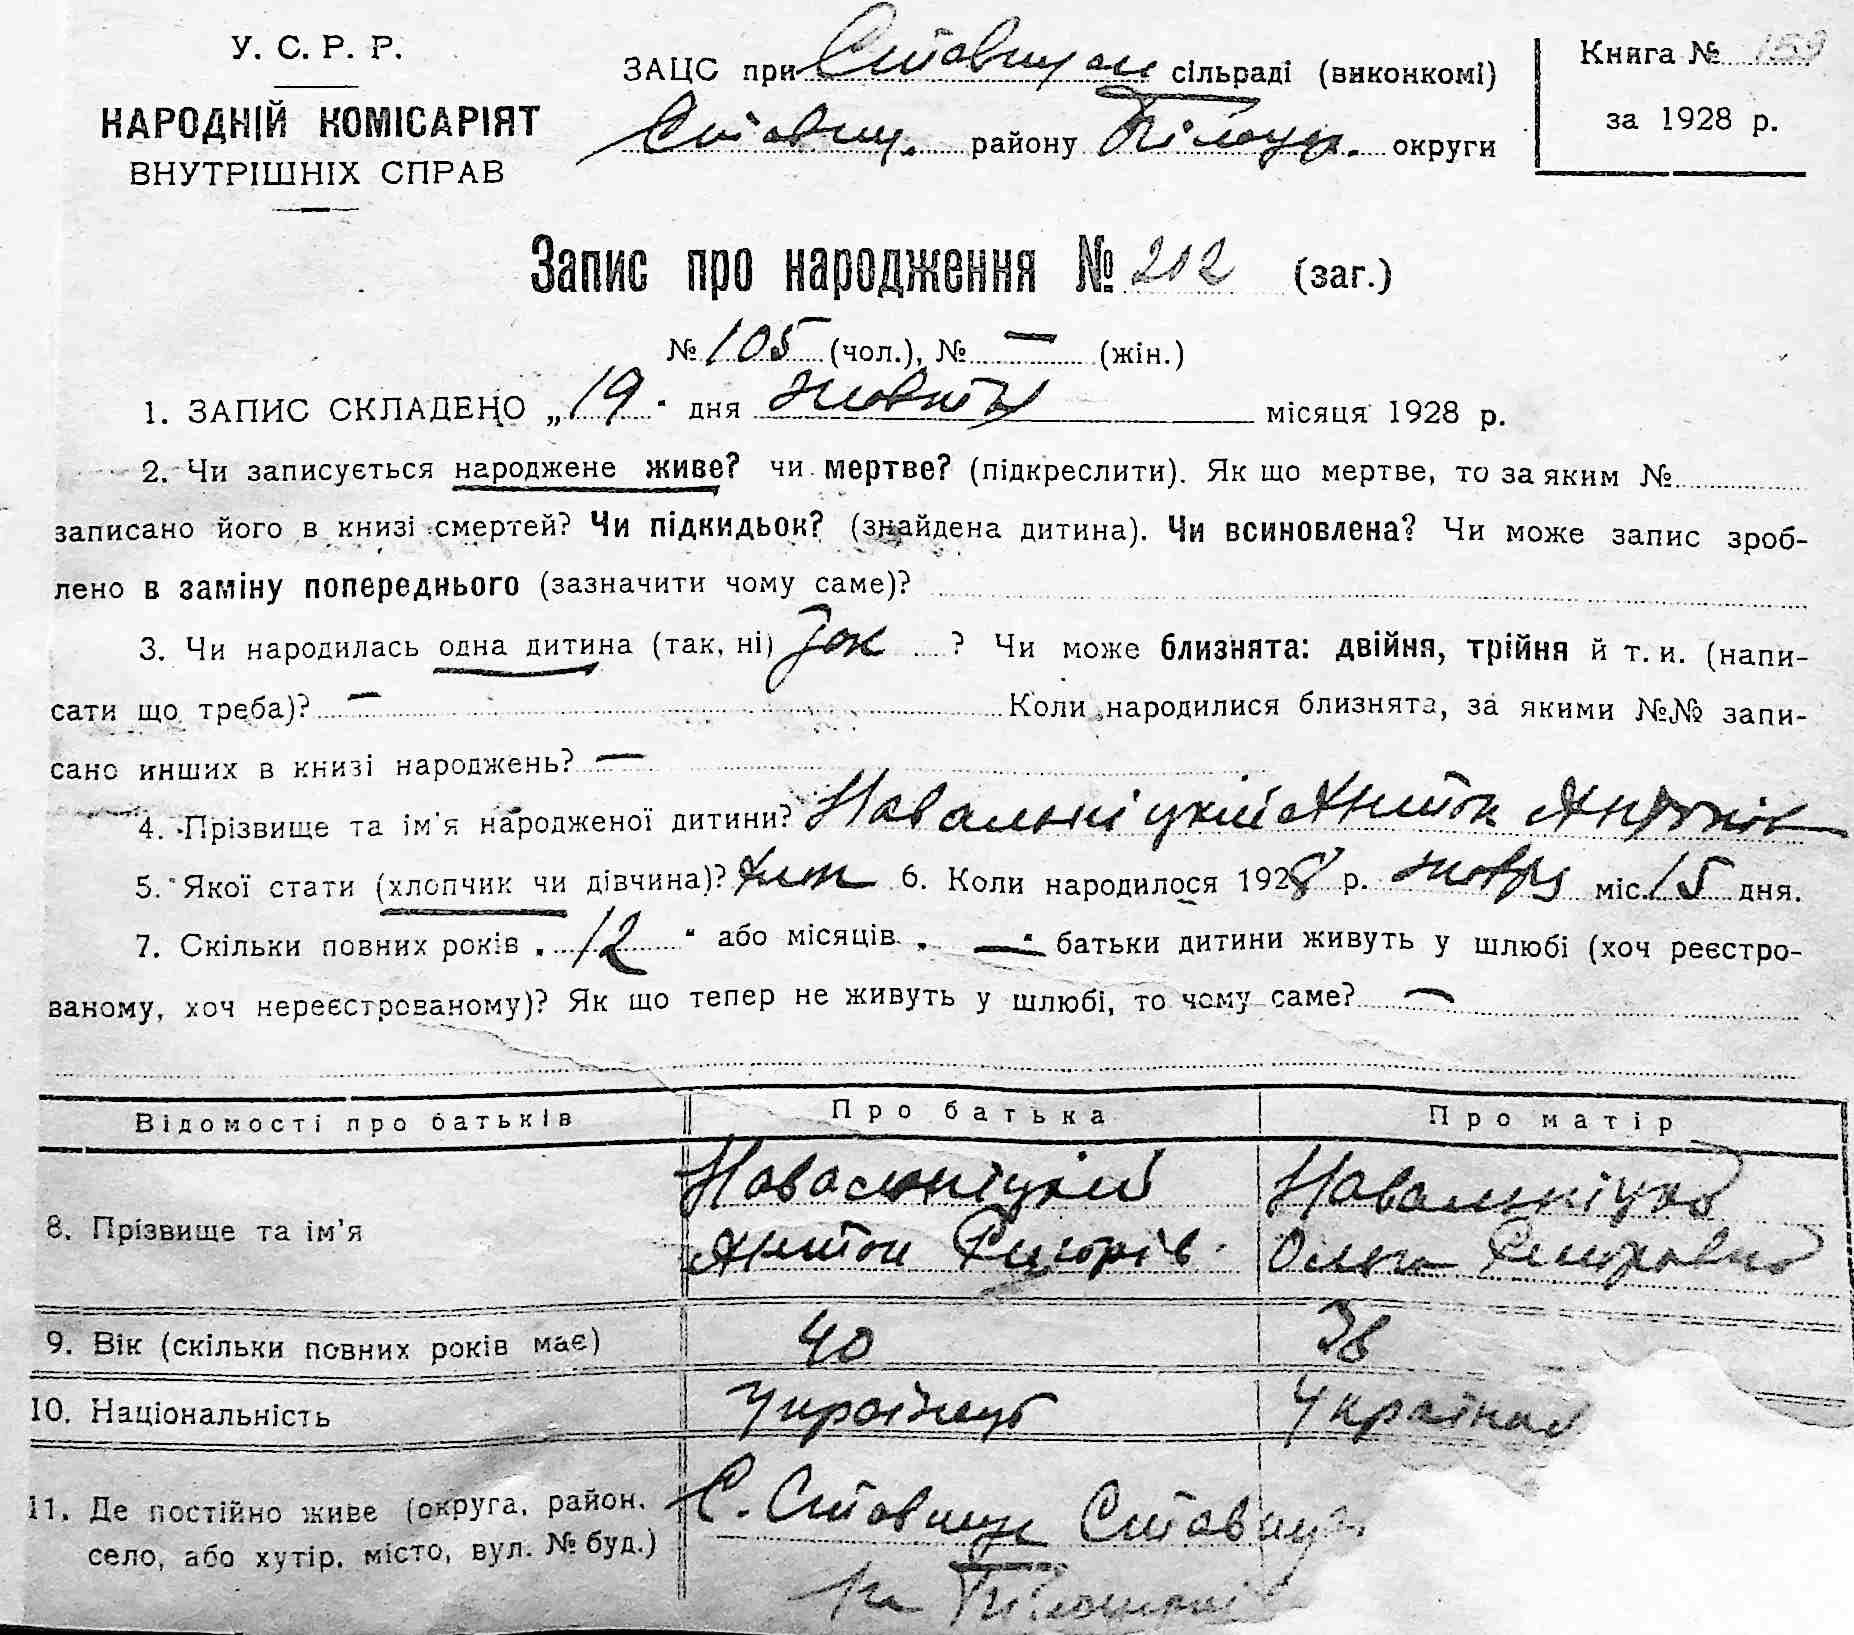 У. С. Р. Р.
НАРОДНІЙ КОМІСАРІЯТ
ВНУТРІШНІХ СПРАВ
ЗАЦС при Ставищан сільраді (виконкомі)
Ставищ. району Білоцер. округи
Книга № 159
за 1928 р.
Запис про народження № 212 (заг.)
№ 105 (чол.), № — (жін.)
1. ЗАПИС СКЛАДЕНО „19" дня жовтня місяця 1928 р.
2. Чи записується народжене живе? чи мертве? (підкреслити). Як що мертве, то за яким №
записано його в книзі смертей? Чи підкидьок? (знайдена дитина). Чи всиновлена? Чи може запис зроб-
лено в заміну попереднього (зазначити чому саме)?
3. Чи народилась одна дитина (так, ні) Так ? Чи може близнята: двійня, трійня й т. и. (напи-
сати що треба)? — Коли народилися близнята, за якими №№ запи-
сано инших в книзі народжень? —
4. Прізвище та ім'я народженої дитини? Навальніцкій Антон Антонів
5. Якої стати (хлопчик чи дівчина)? 6. Коли народилося 1928 р. жовтн міс. 15 дня.
7. Скільки повних років „12" або місяців „—" батьки дитини живуть у шлюбі (хоч реєстро-
ваному, хоч нереєстрованому)? Як що тепер не живуть у шлюбі, то чому саме? —
Відомості про батьків Про батька Про матір
8. Прізвище та ім'я Навальніцкій Антон Навальніцка Ольга
9. Вік (скільки повних років має) 40 38
10. Національність Українець Українка
11. Де постійно живе (округа, район, село, або хутір, місто, вул. № буд.) С. Ставище Ставищ
на Білоцер